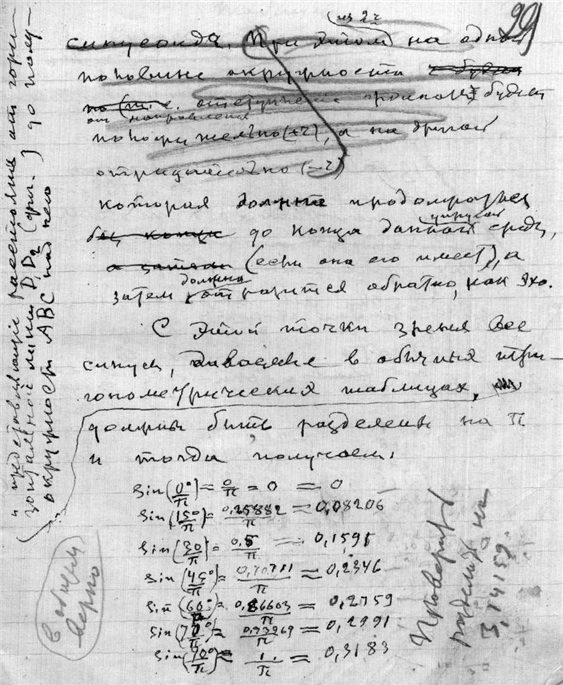 29
из 2-х
синусоида. При этом на одной
половине окружности
будет
от направления
положительно (+2), а на другой
отрицательно (−2)
которая должна продолжаться
до конца данной упругой среды,
а затем (если она его имеет), а
затем должна отразится обратно, как эхо.
С этой точки зрения все
синусы, даваемые в обычных три-
гонометрических таблицах,
должны быть разделены на π
и тогда получаем:
sin(0°/π) = 0/π = 0 = 0
sin(15°/π) = 0,25882/π = 0,08206
sin(30/π) = 0,5/π = 0,1591
sin(45°/π) = 0,70711/π = 0,2346
sin(60°/π) = 0,86603/π = 0,2759
sin(70°/π) = 0,93969/π = 0,2991
sin(90°/π) = 1/π = 0,3183
и представляющие расстояния от гори-
зонтальной линии D₁D₂ (фиг. ) до полу-
окружности ABC над нею
в общем
верно
Проверить
разделив на
3,14159